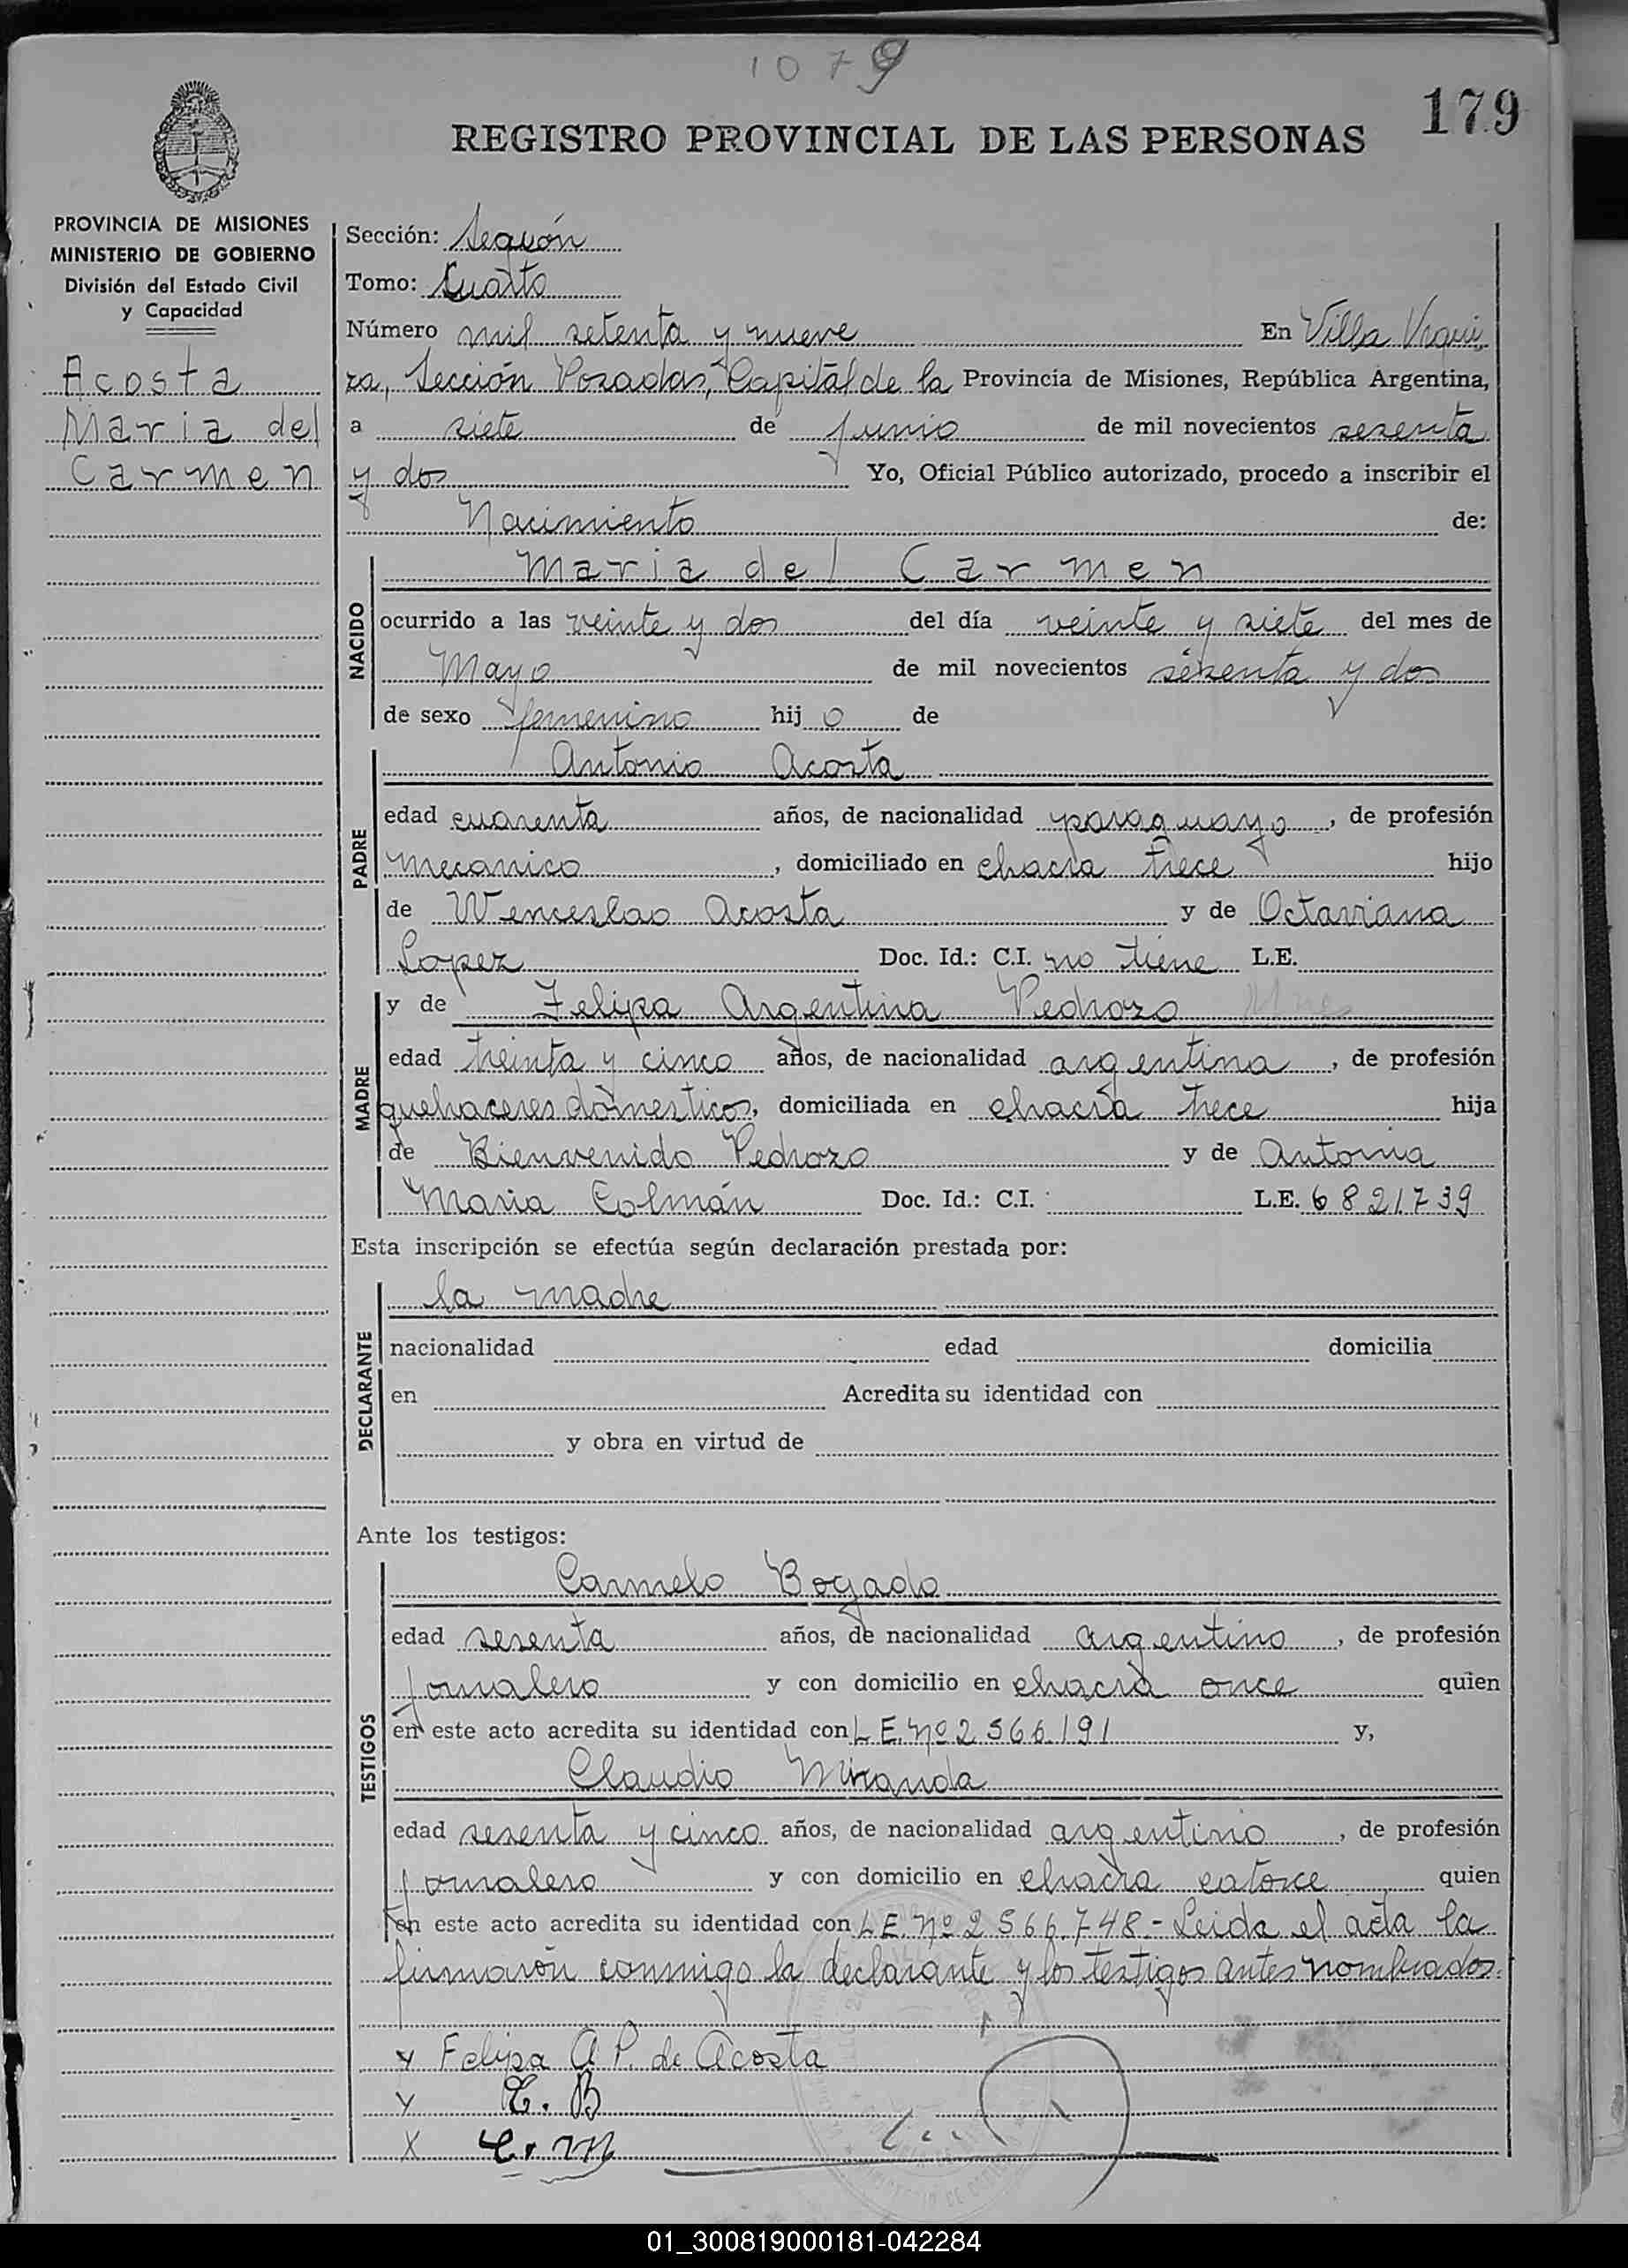 1079
179
REGISTRO PROVINCIAL DE LAS PERSONAS
PROVINCIA DE MISIONES
MINISTERIO DE GOBIERNO
División del Estado Civil
y Capacidad
Acosta
Maria del
Carmen
Sección:
Tomo: Cuarto
Número mil setenta y nueve En Villa Urqui
za, Sección Posadas, Capital de la Provincia de Misiones, República Argentina,
a siete de junio de mil novecientos sesenta
y dos Yo, Oficial Público autorizado, procedo a inscribir el
Nacimiento de:
NACIDO
Maria del Carmen
ocurrido a las veinte y dos del día veinte y siete del mes de
Mayo de mil novecientos sesenta y dos
de sexo femenino hij o de
PADRE
Antonio Acosta
edad cuarenta años, de nacionalidad paraguayo, de profesión
mecanico, domiciliado en chacra trece hijo
de Wenceslao Acosta y de Octaviana
Lopez Doc. Id.: C.I. no tiene L.E.
MADRE
y de Felipa Argentina Pedrozo
edad treinta y cinco años, de nacionalidad argentina, de profesión
quehaceres domesticos, domiciliada en chacra trece hija
de Bienvenido Pedrozo y de Antonia
Maria Colmán Doc. Id.: C.I. L.E. 6821.739
Esta inscripción se efectúa según declaración prestada por:
DECLARANTE
la madre
nacionalidad edad domicilia
en Acredita su identidad con
y obra en virtud de
Ante los testigos:
TESTIGOS
Carmelo Bogado
edad sesenta años, de nacionalidad argentino, de profesión
jornalero y con domicilio en chacra once quien
en este acto acredita su identidad con L.E. Nº 2.566.191 y,
Claudio Miranda
edad sesenta y cinco años, de nacionalidad argentino, de profesión
jornalero y con domicilio en chacra catorce quien
en este acto acredita su identidad con L.E. Nº 2.566.748.- Leida el acta la
firmarón conmigo la declarante y los testigos antes nombrados.
x Felipa A P. de Acosta
x C. B
x C. M
01_300819000181-042284